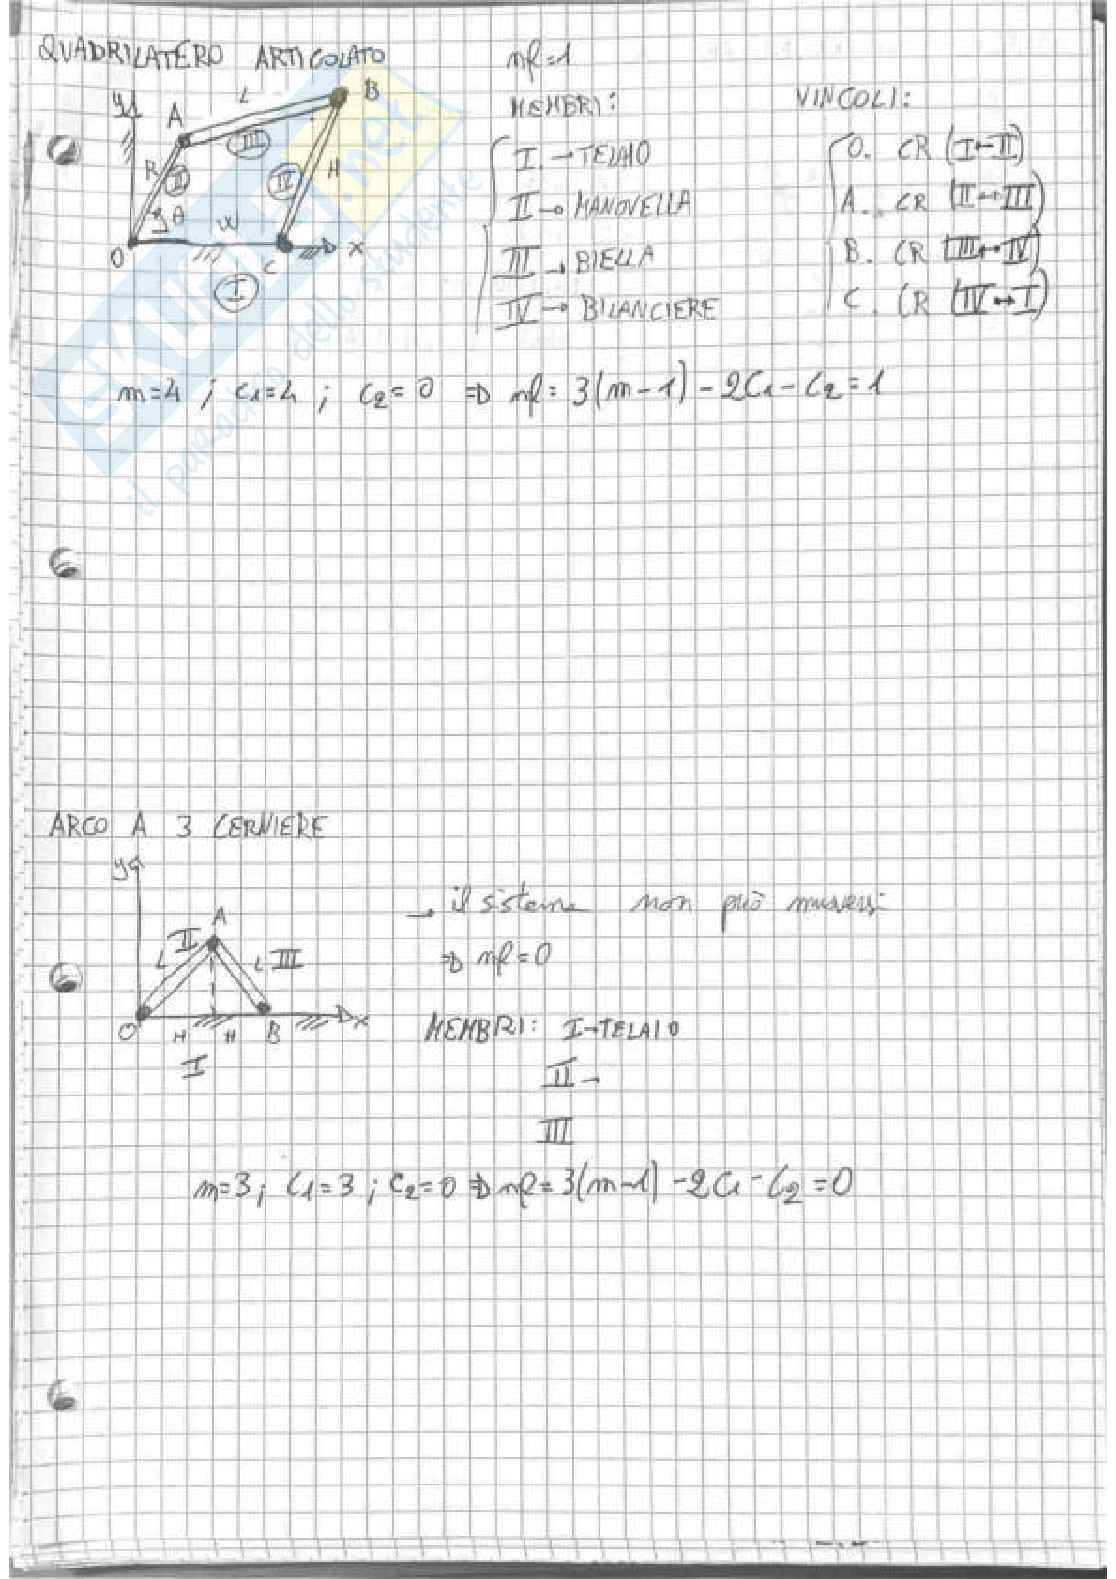 QUADRILATERO ARTICOLATO
nl=1
y
A
L
B
III
R
II
IV
H
θ
W
O
C
x
I
MEMBRI:
I → TELAIO
II → MANOVELLA
III → BIELLA
IV → BILANCIERE
VINCOLI:
O. CR (I↔II)
A. CR (II↔III)
B. CR (III↔IV)
C. CR (IV↔I)
m=4 ; C1=4 ; C2=0 ⇒ nl= 3(m-1)-2C1-C2=1
SKUOLA.net
il paradiso dello studente
ARCO A 3 CERNIERE
y
A
II
L
L
III
O
H
H
B
x
I
→ il sistema non può muoversi
⇒ nl=0
MEMBRI: I→TELAIO
II →
III
m=3; C1=3; C2=0 ⇒ nl=3(m-1)-2C1-C2=0